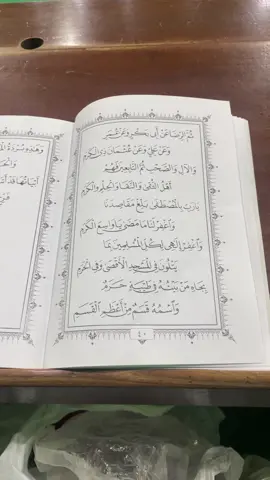 ثُمَّ الرِّضَا عَنْ أَبِي بَكْرٍ وَعَنْ عُمَرٍ
وَعَنْ عَلِيٍّ وَعَنْ عُثْمَانَ ذِي الْكَرَمِ
وَالْآلِ وَالصَّحْبِ ثُمَّ التَّابِعِينَ فَهُمْ
أَهْلُ التُّقَى وَالنَّقَا وَالْحِلْمِ وَالْكَرَمِ
يَارَبِّ بِالْمُصْطَفَى بَلِّغْ مَقَاصِدَنَا
وَاغْفِرْ لَنَا مَا مَضَى يَا وَاسِعَ الْكَرَمِ
وَاغْفِرْ إِلٰهِي لِكُلِّ الْمُسْلِمِينَ بِمَا
يَتْلُونَ فِي الْمَسْجِدِ الْأَقْصَى وَفِي الْحَرَمِ
بِجَاهِ مَنْ بَيْتُهُ فِي طَيْبَةٍ حَرَمٌ
وَاسْمُهُ قَسَمٌ مِنْ أَعْظَمِ الْقَسَمِ
٤٠
وَهٰذِهِ بُرْدَةُ